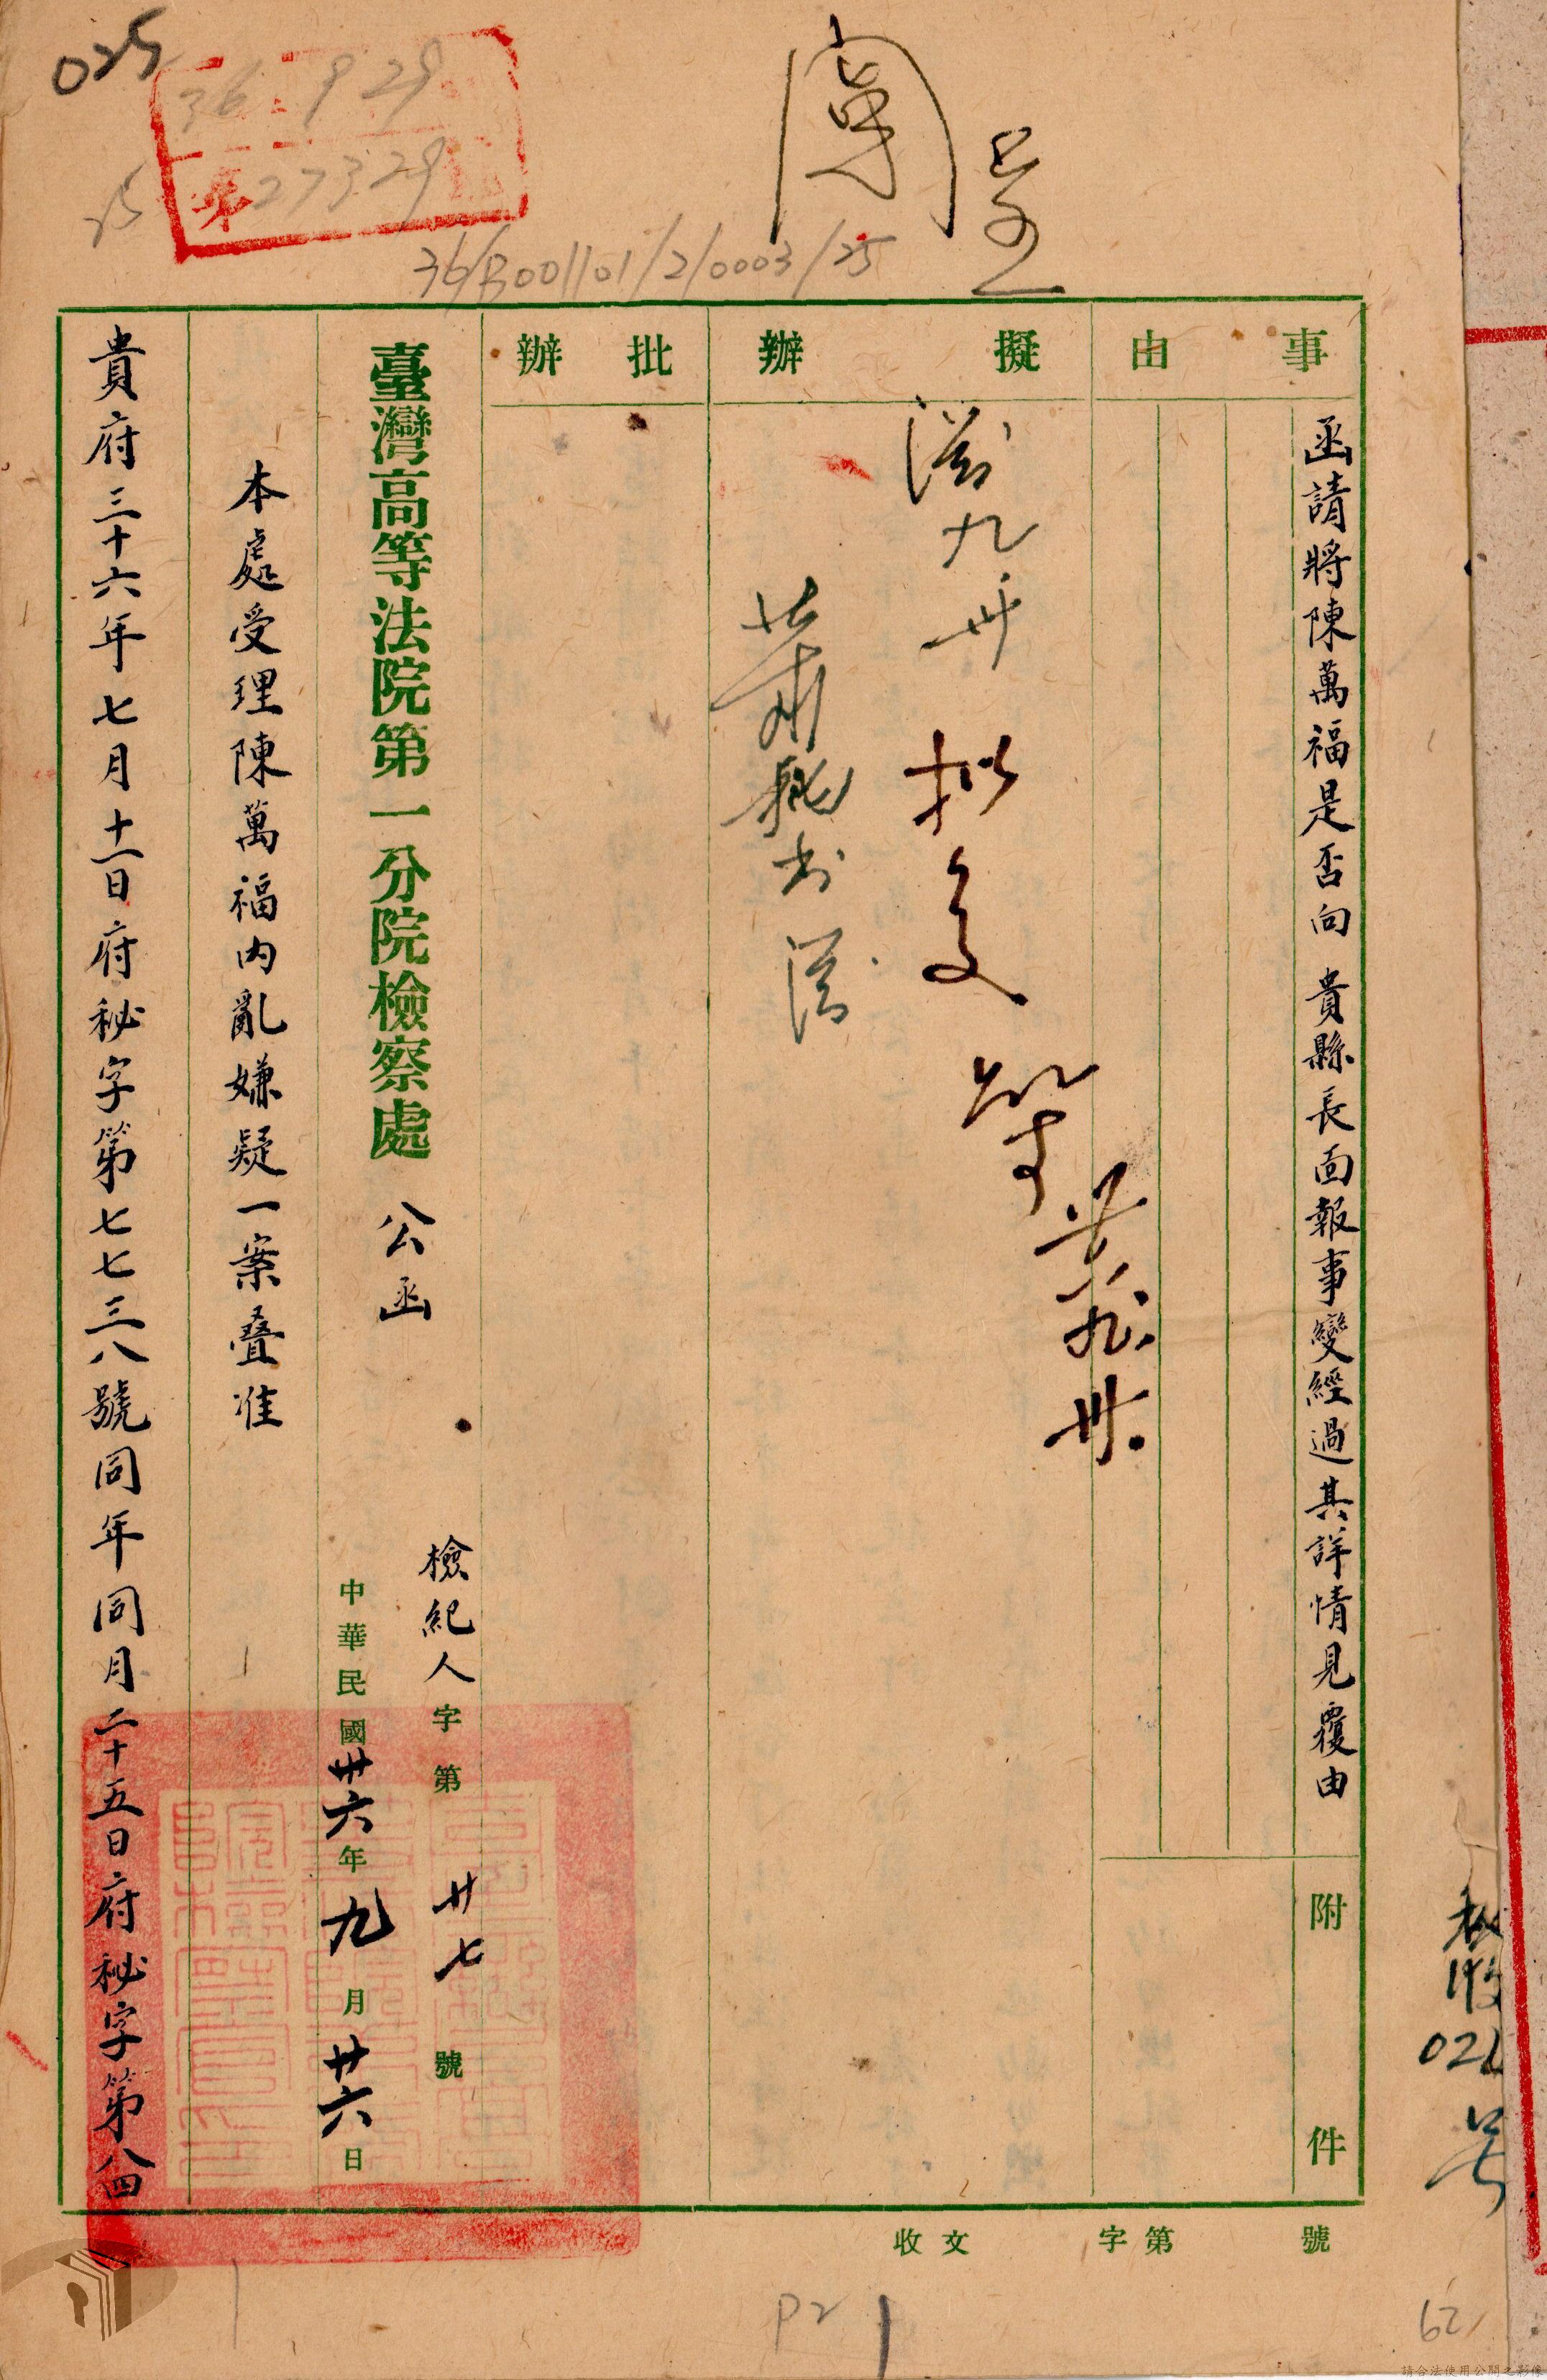 025
36 9 29
第27329
25
36/B001101/2/0003/25
事由
函請將陳萬福是否向 貴縣長面報事變經過其詳情見覆由
附件
擬辦
九 卅
拟复
九.卅.
秘書
批辦
臺灣高等法院第一分院檢察處 公函
檢紀人字第廿七號
中華民國卅六年九月廿六日
本處受理陳萬福內亂嫌疑一案叠准
貴府三十六年七月十一日府秘字第七七三八號同年同月二十五日府秘字第八四
收文 字第 號
秘收
02
号
P2
62
請合法使用公開之影像